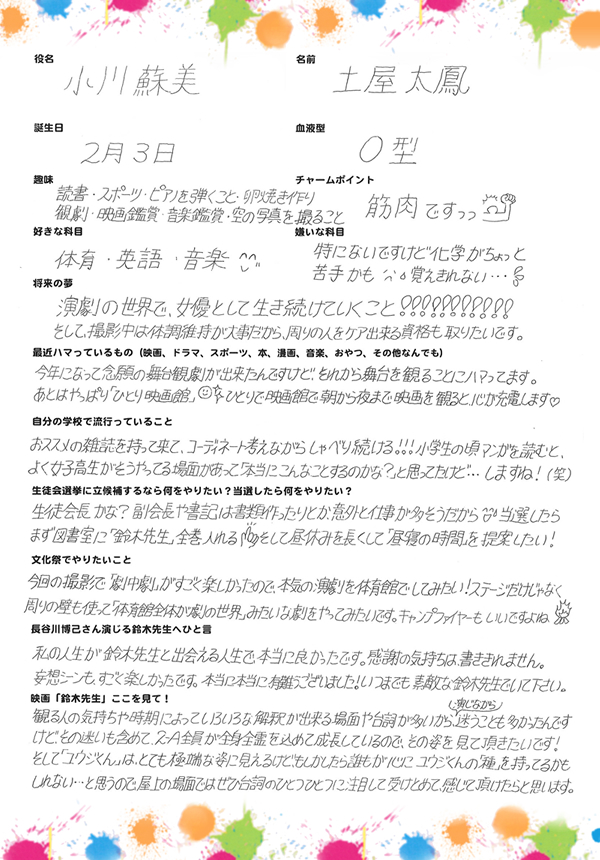 役名
小川 蘇美
名前
土屋 太鳳
誕生日
2月3日
血液型
O型
趣味
読書・スポーツ・ピアノを弾くこと・卵焼き作り
観劇・映画鑑賞・音楽鑑賞・空の写真を撮ること
チャームポイント
筋肉ですっっ
好きな科目
体育・英語・音楽
嫌いな科目
特にないですけど化学がちょっと
苦手かも 覚えきれない…
将来の夢
演劇の世界で、女優として生き続けていくこと!!!!!!!!!!!
そして、撮影中は体調維持が大事だから、周りの人をケア出来る資格も取りたいです。
最近ハマっているもの（映画、ドラマ、スポーツ、本、漫画、音楽、おやつ、その他なんでも）
今年になって念願の舞台観劇が出来たんですけど、それから舞台を観ることにハマってます。
あとはやっぱり「ひとり映画館」 ひとりで映画館で朝から夜まで映画を観ると、心が充電します♡
自分の学校で流行っていること
おススメの雑誌を持って来て、コーディネート考えながらしゃべり続ける!!!小学生の頃マンガを読むと、
よく女子高生がそうやってる場面があって「本当にこんなことするのかな?」と思ってたけど…しますね!(笑)
生徒会選挙に立候補するなら何をやりたい？当選したら何をやりたい？
生徒会長かな?副会長や書記は書類作ったりとか意外と仕事が多そうだから 当選したら
まず図書室に「鈴木先生」全巻入れる そして昼休みを長くして「昼寝の時間」を提案したい!
文化祭でやりたいこと
今回の撮影で「劇中劇」がすごく楽しかったので、本気の演劇を体育館でしてみたい!ステージだけじゃなく
周りの壁も使って「体育館全体が劇の世界」みたいな劇をやってみたいです。キャンプファイヤーもいいですよね
長谷川博己さん演じる鈴木先生へひと言
私の人生が鈴木先生と出会える人生で、本当に良かったです。感謝の気持ちは、書ききれません。
妄想シーンも、すごく楽しかったです。本当に本当に有難うございました!いつまでも素敵な鈴木先生でいて下さい。
映画「鈴木先生」ここを見て！
観る人の気持ちや時期によっていろいろな解釈が出来る場面や台詞が多いから、演じながら迷うことも多かったんです
けど、その迷いも含めて、2-A全員が全身全霊を込めて成長しているので、その姿を見て頂きたいです!
そして「ユウジくん」は、とても極端な姿に見えるけど、もしかしたら誰もが心にユウジくんの「種」を持ってるかも
しれない…と思うので、屋上の場面ではぜひ台詞のひとつひとつに注目して受けとめて、感じて頂けたらと思います。